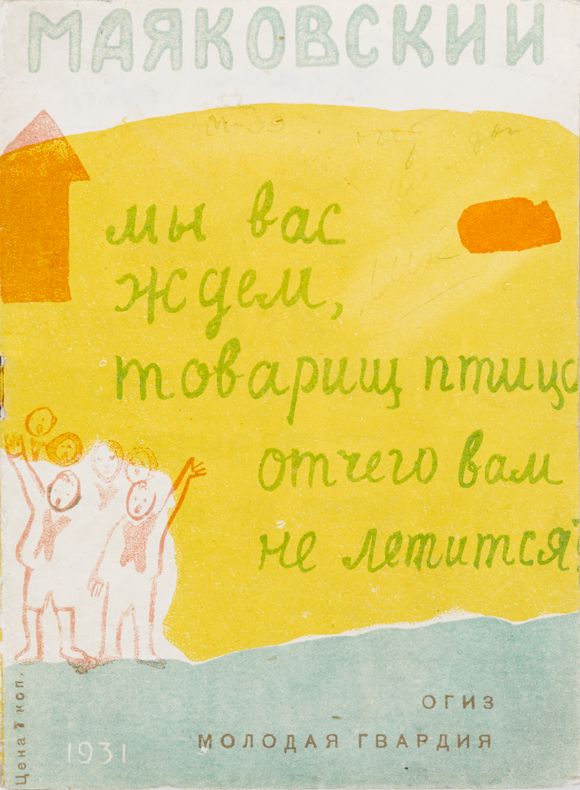 МАЯКОВСКИЙ
мы вас
ждем,
товарищ птица
отчего вам
не летится?
ОГИЗ
МОЛОДАЯ ГВАРДИЯ
1931
Цена 7 коп.